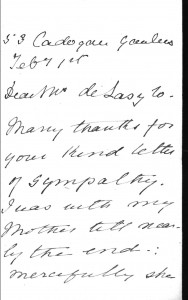 53 Cadogan Gardens
Feby 1st
Dear Mr de Laszlo -
Many thanks for
your kind letter
of Sympathy.
I was with my
Mother till near-
ly the end -:
mercifully she